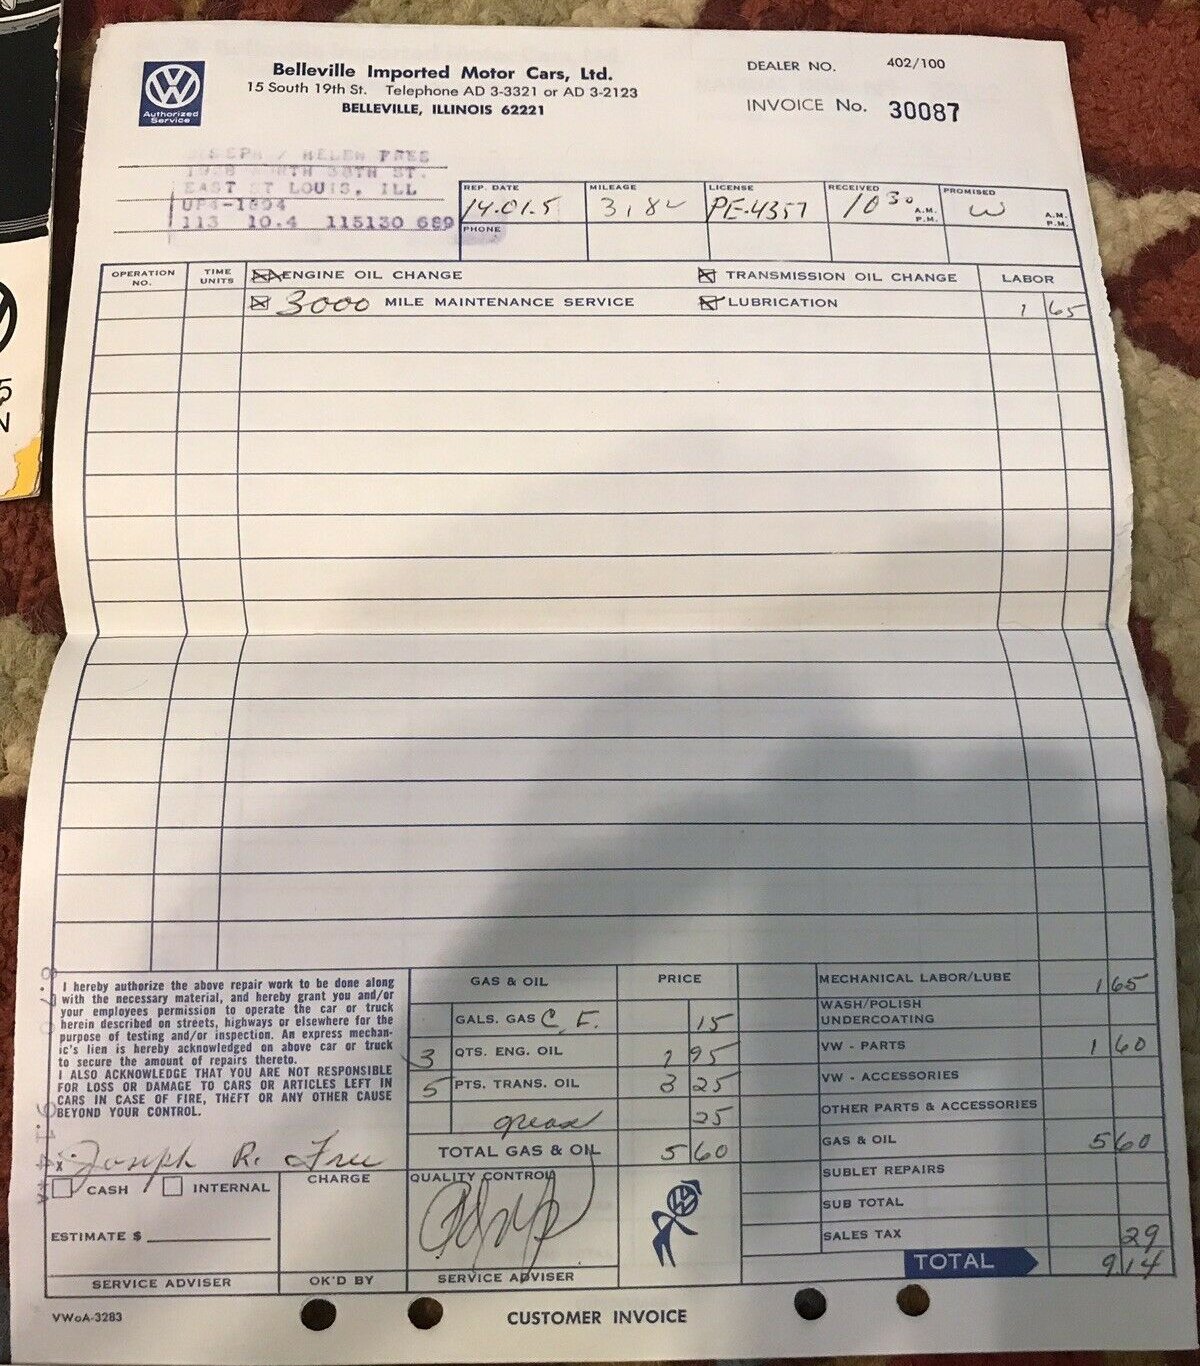 Authorized
Service
Belleville Imported Motor Cars, Ltd.
15 South 19th St. Telephone AD 3-3321 or AD 3-2123
BELLEVILLE, ILLINOIS 62221
DEALER NO. 402/100
INVOICE No. 30087
HELEN FREE
ST.
EAST ST LOUIS, ILL
UP4-1894
113 10.4 115130 689
REP. DATE MILEAGE LICENSE RECEIVED PROMISED
14.01.5 3,82 PE-4357 10 30 A.M. P.M. W A.M. P.M.
PHONE
OPERATION NO. TIME UNITS ENGINE OIL CHANGE TRANSMISSION OIL CHANGE LABOR
3000 MILE MAINTENANCE SERVICE LUBRICATION 1 65
5
N
I hereby authorize the above repair work to be done along
with the necessary material, and hereby grant you and/or
your employees permission to operate the car or truck
herein described on streets, highways or elsewhere for the
purpose of testing and/or inspection. An express mechan-
ic's lien is hereby acknowledged on above car or truck
to secure the amount of repairs thereto.
I ALSO ACKNOWLEDGE THAT YOU ARE NOT RESPONSIBLE
FOR LOSS OR DAMAGE TO CARS OR ARTICLES LEFT IN
CARS IN CASE OF FIRE, THEFT OR ANY OTHER CAUSE
BEYOND YOUR CONTROL.
x Joseph R. Free
CASH INTERNAL
ESTIMATE $
SERVICE ADVISER
CHARGE
OK'D BY
GAS & OIL PRICE
GALS. GAS C.F. 15
3 QTS. ENG. OIL 1 95
5 PTS. TRANS. OIL 3 25
grease 25
TOTAL GAS & OIL 5 60
QUALITY CONTROL
SERVICE ADVISER
MECHANICAL LABOR/LUBE 1 65
WASH/POLISH
UNDERCOATING
VW - PARTS 1 60
VW - ACCESSORIES
OTHER PARTS & ACCESSORIES
GAS & OIL 5 60
SUBLET REPAIRS
SUB TOTAL
SALES TAX 29
TOTAL 9.14
VWoA-3283
CUSTOMER INVOICE